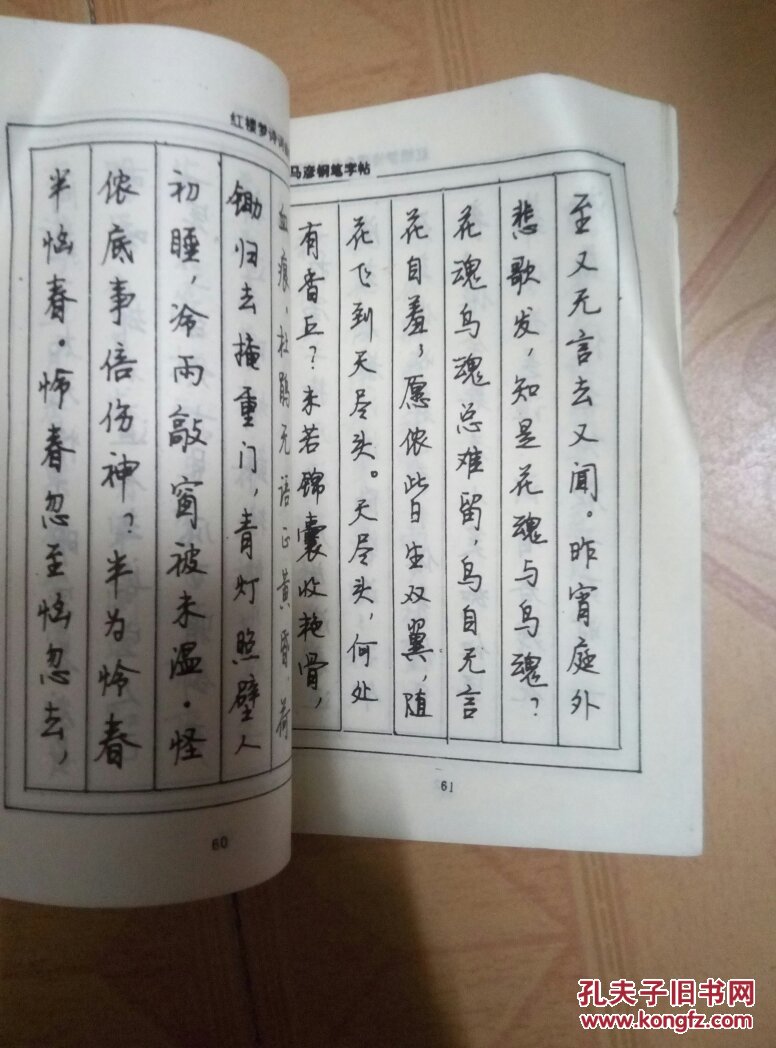 红楼梦诗词
血痕.杜鹃无语正黄昏,荷
锄归去掩重门,青灯照壁人
初睡,冷雨敲窗被未温.怪
侬底事倍伤神?半为怜春
半恼春.怜春忽至恼忽去,
60
马彦钢笔字帖
至又无言去又闻。昨宵庭外
悲歌发,知是花魂与鸟魂?
花魂鸟魂总难留,鸟自无言
花自羞;愿侬此日生双翼,随
花飞到天尽头。天尽头,何处
有香丘?未若锦囊收艳骨,
61
孔夫子旧书网
www.kongfz.com